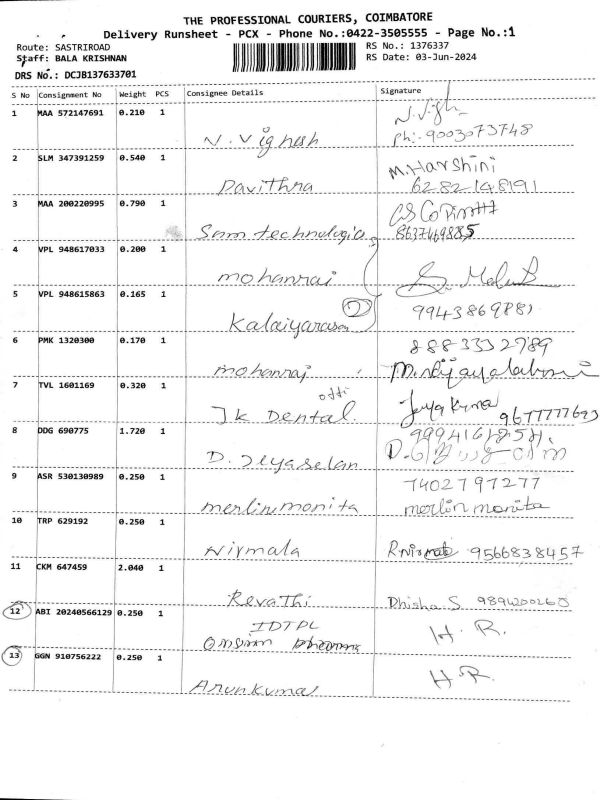 THE PROFESSIONAL COURIERS, COIMBATORE
Delivery Runsheet - PCX - Phone No.:0422-3505555 - Page No.:1
Route: SASTRIROAD RS No.: 1376337
Staff: BALA KRISHNAN RS Date: 03-Jun-2024
DRS No.: DCJB137633701
S No Consignment No Weight PCS Consignee Details Signature
1 MAA 572147691 0.210 1 N. Vignesh
Ph:- 9003073748
2 SLM 347391259 0.540 1 Pavithra M. Harshini
6282148191
3 MAA 200220995 0.790 1 Snm technologie
8637469885
4 VPL 948617033 0.200 1 mohanraj
5 VPL 948615863 0.165 1 Kalaiyarasan 2
6 PMK 1320300 0.170 1 mohanraj
7 TVL 1601169 0.320 1 Jk Dental Jaya Kumar
8 DDG 690775 1.720 1 D. Jeyaselan
9 ASR 530130989 0.250 1 merlin monita 7402797277
merlin monita
10 TRP 629192 0.250 1 Nirmala R. Nirmala 9566838457
11 CKM 647459 2.040 1 Revathi Dhisha S
12 ABI 20240566129 0.250 1 IDTPL H. R.
13 GGN 910756222 0.250 1 Arunkumar H. R.